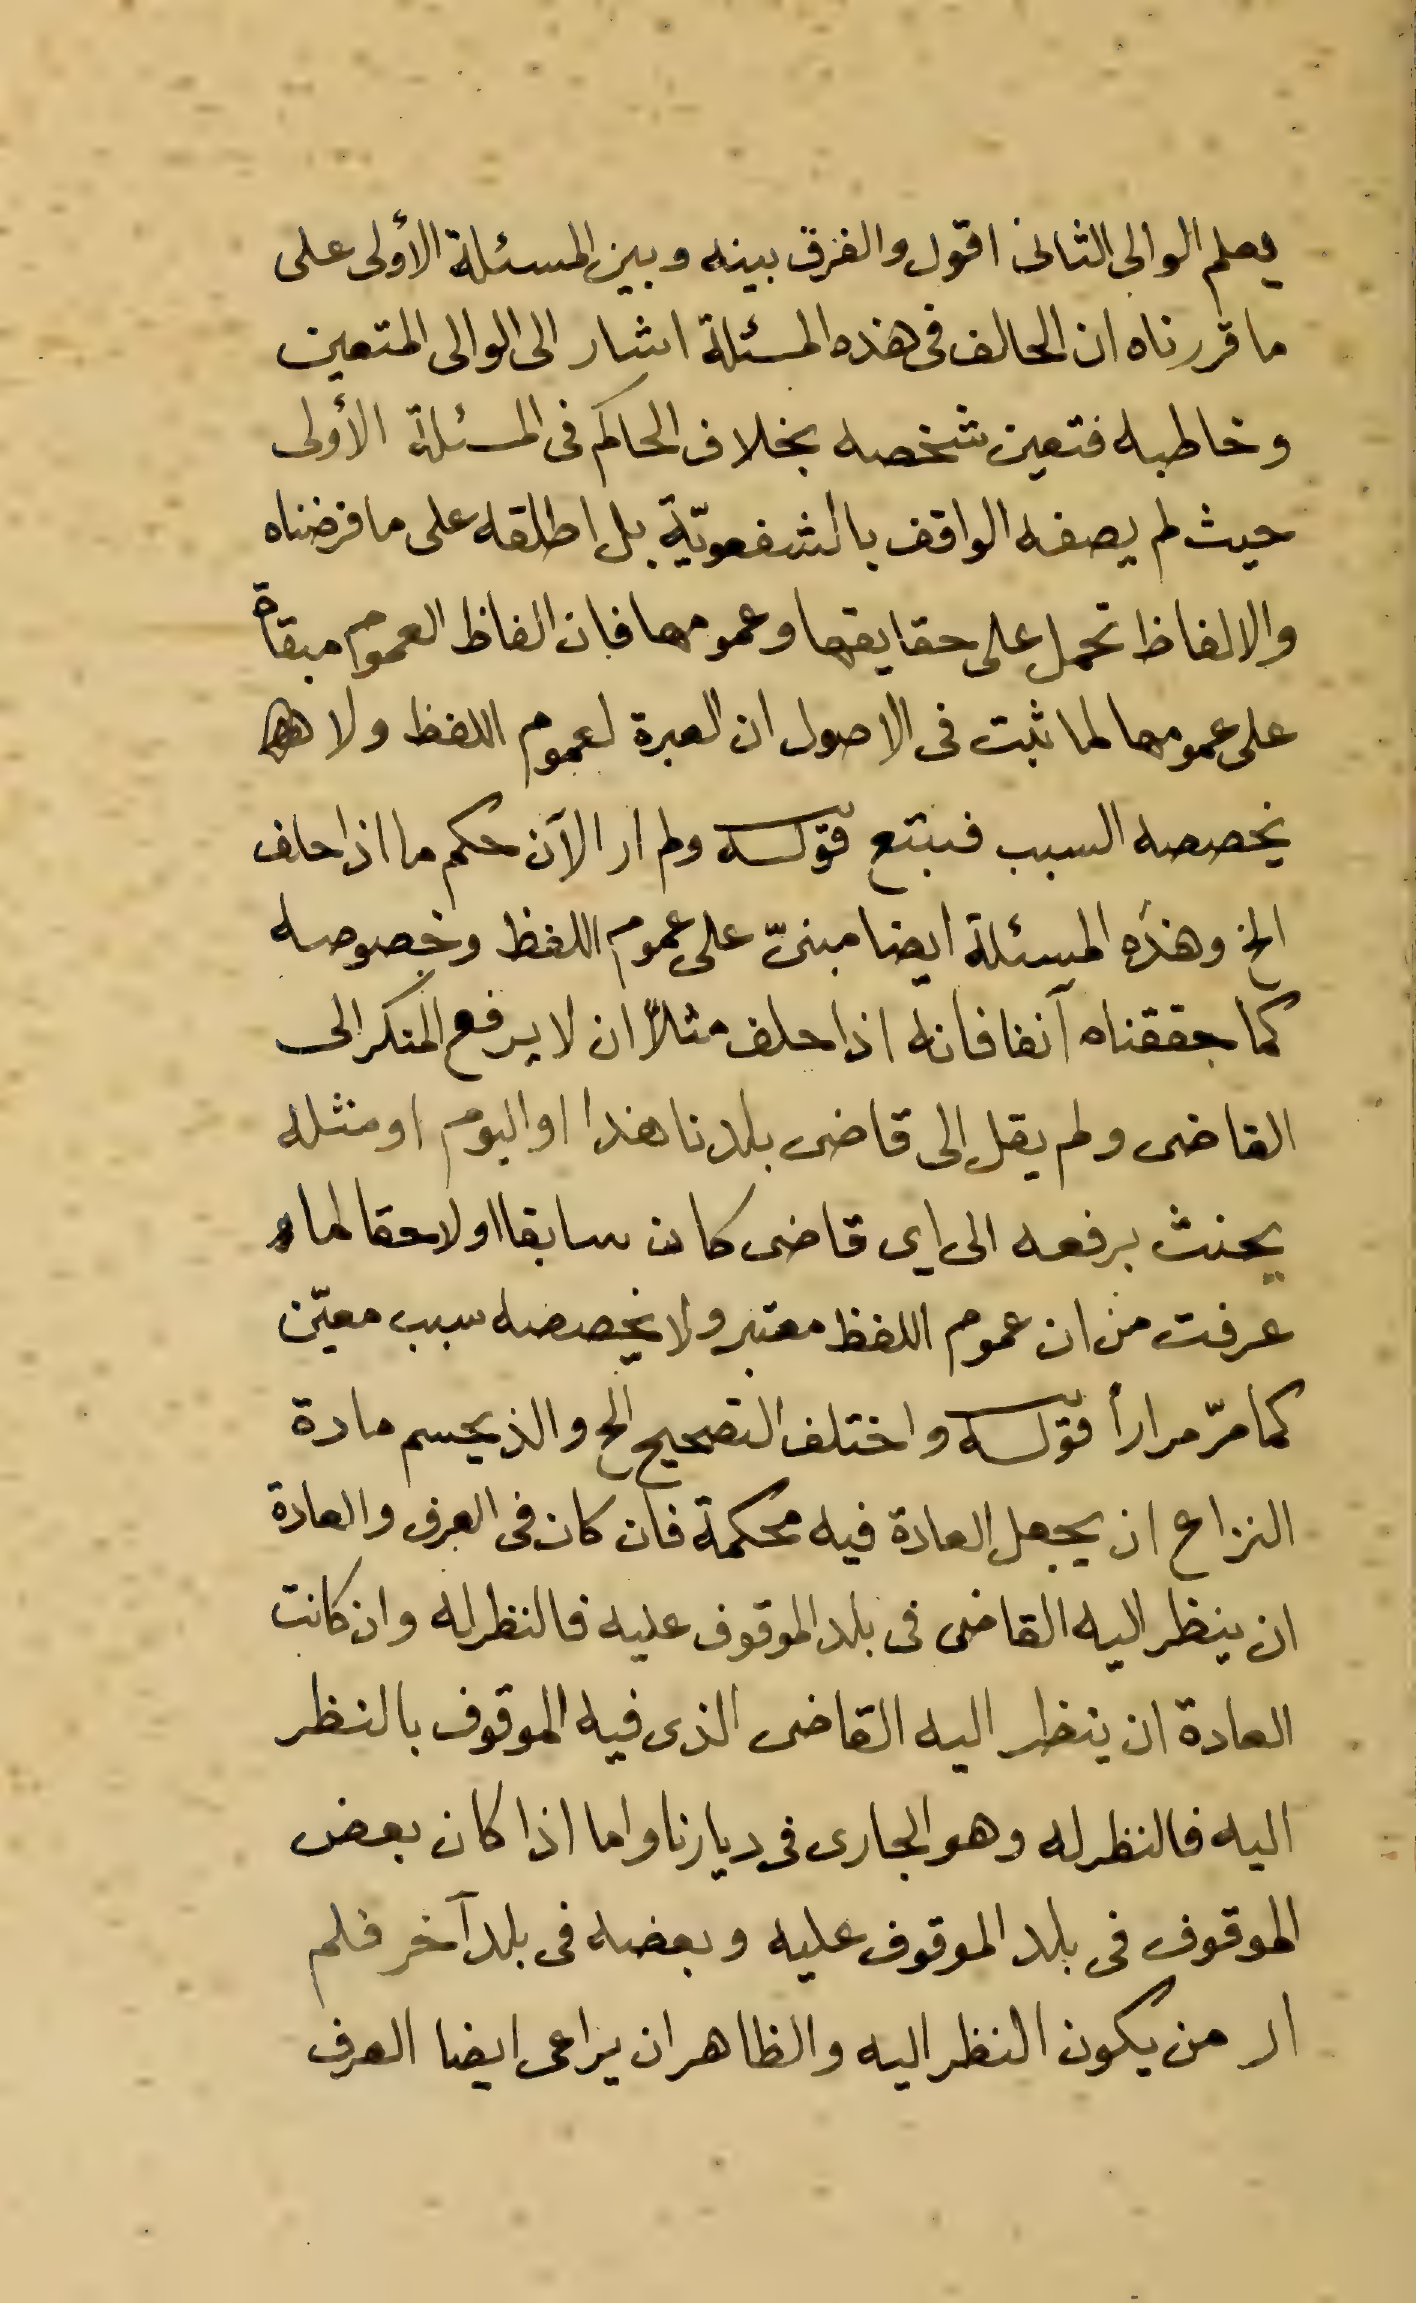 يعلم الوالى الثانى اقول والفرق بينه وبين المسئلة الأولى على
ما قررناه ان الحالف فى هذه المسئلة اشار الى الوالى المتعين
وخاطبه فتعين شخصه بخلاف الحاكم فى المسئلة الأولى
حيث لم يصفه الواقف بالشفعويّة بل اطلقه على ما فرضناه
والالفاظ تحمل على حقايقها وعمومها فان الفاظ العموم مبقاة
على عمومها لما ثبت فى الاصول ان العبرة لعموم اللفظ ولا
يخصصه السبب فيتبع قوله ولم ار الآن حكم ما اذا حلف
الخ وهذه المسئلة ايضا مبنىّ على عموم اللفظ وخصوصه
كما حققناه آنفا فانه اذا حلف مثلاً ان لا يرفع المنكر الى
القاضى ولم يقل الى قاضى بلدنا هذا او اليوم او مثله
يحنث برفعه الى اى قاضى كان سابقا او لاحقا لما
عرفت من ان عموم اللفظ معتبر ولا يخصصه سبب معيّن
كما مرّ مراراً قوله واختلف التصحيح الخ والذى يحسم مادة
النزاع ان يجعل العادة فيه محكمة فان كان فى العرف والعادة
ان ينظر اليه القاضى فى بلد الموقوف عليه فالنظر له وان كانت
العادة ان ينظر اليه القاضى الذى فيه الموقوف بالنظر
اليه فالنظر له وهو الجارى فى ديارنا واما اذا كان بعض
الموقوف فى بلد الموقوف عليه وبعضه فى بلد آخر فلم
ار من يكون النظر اليه والظاهر ان يراعى ايضا العرف